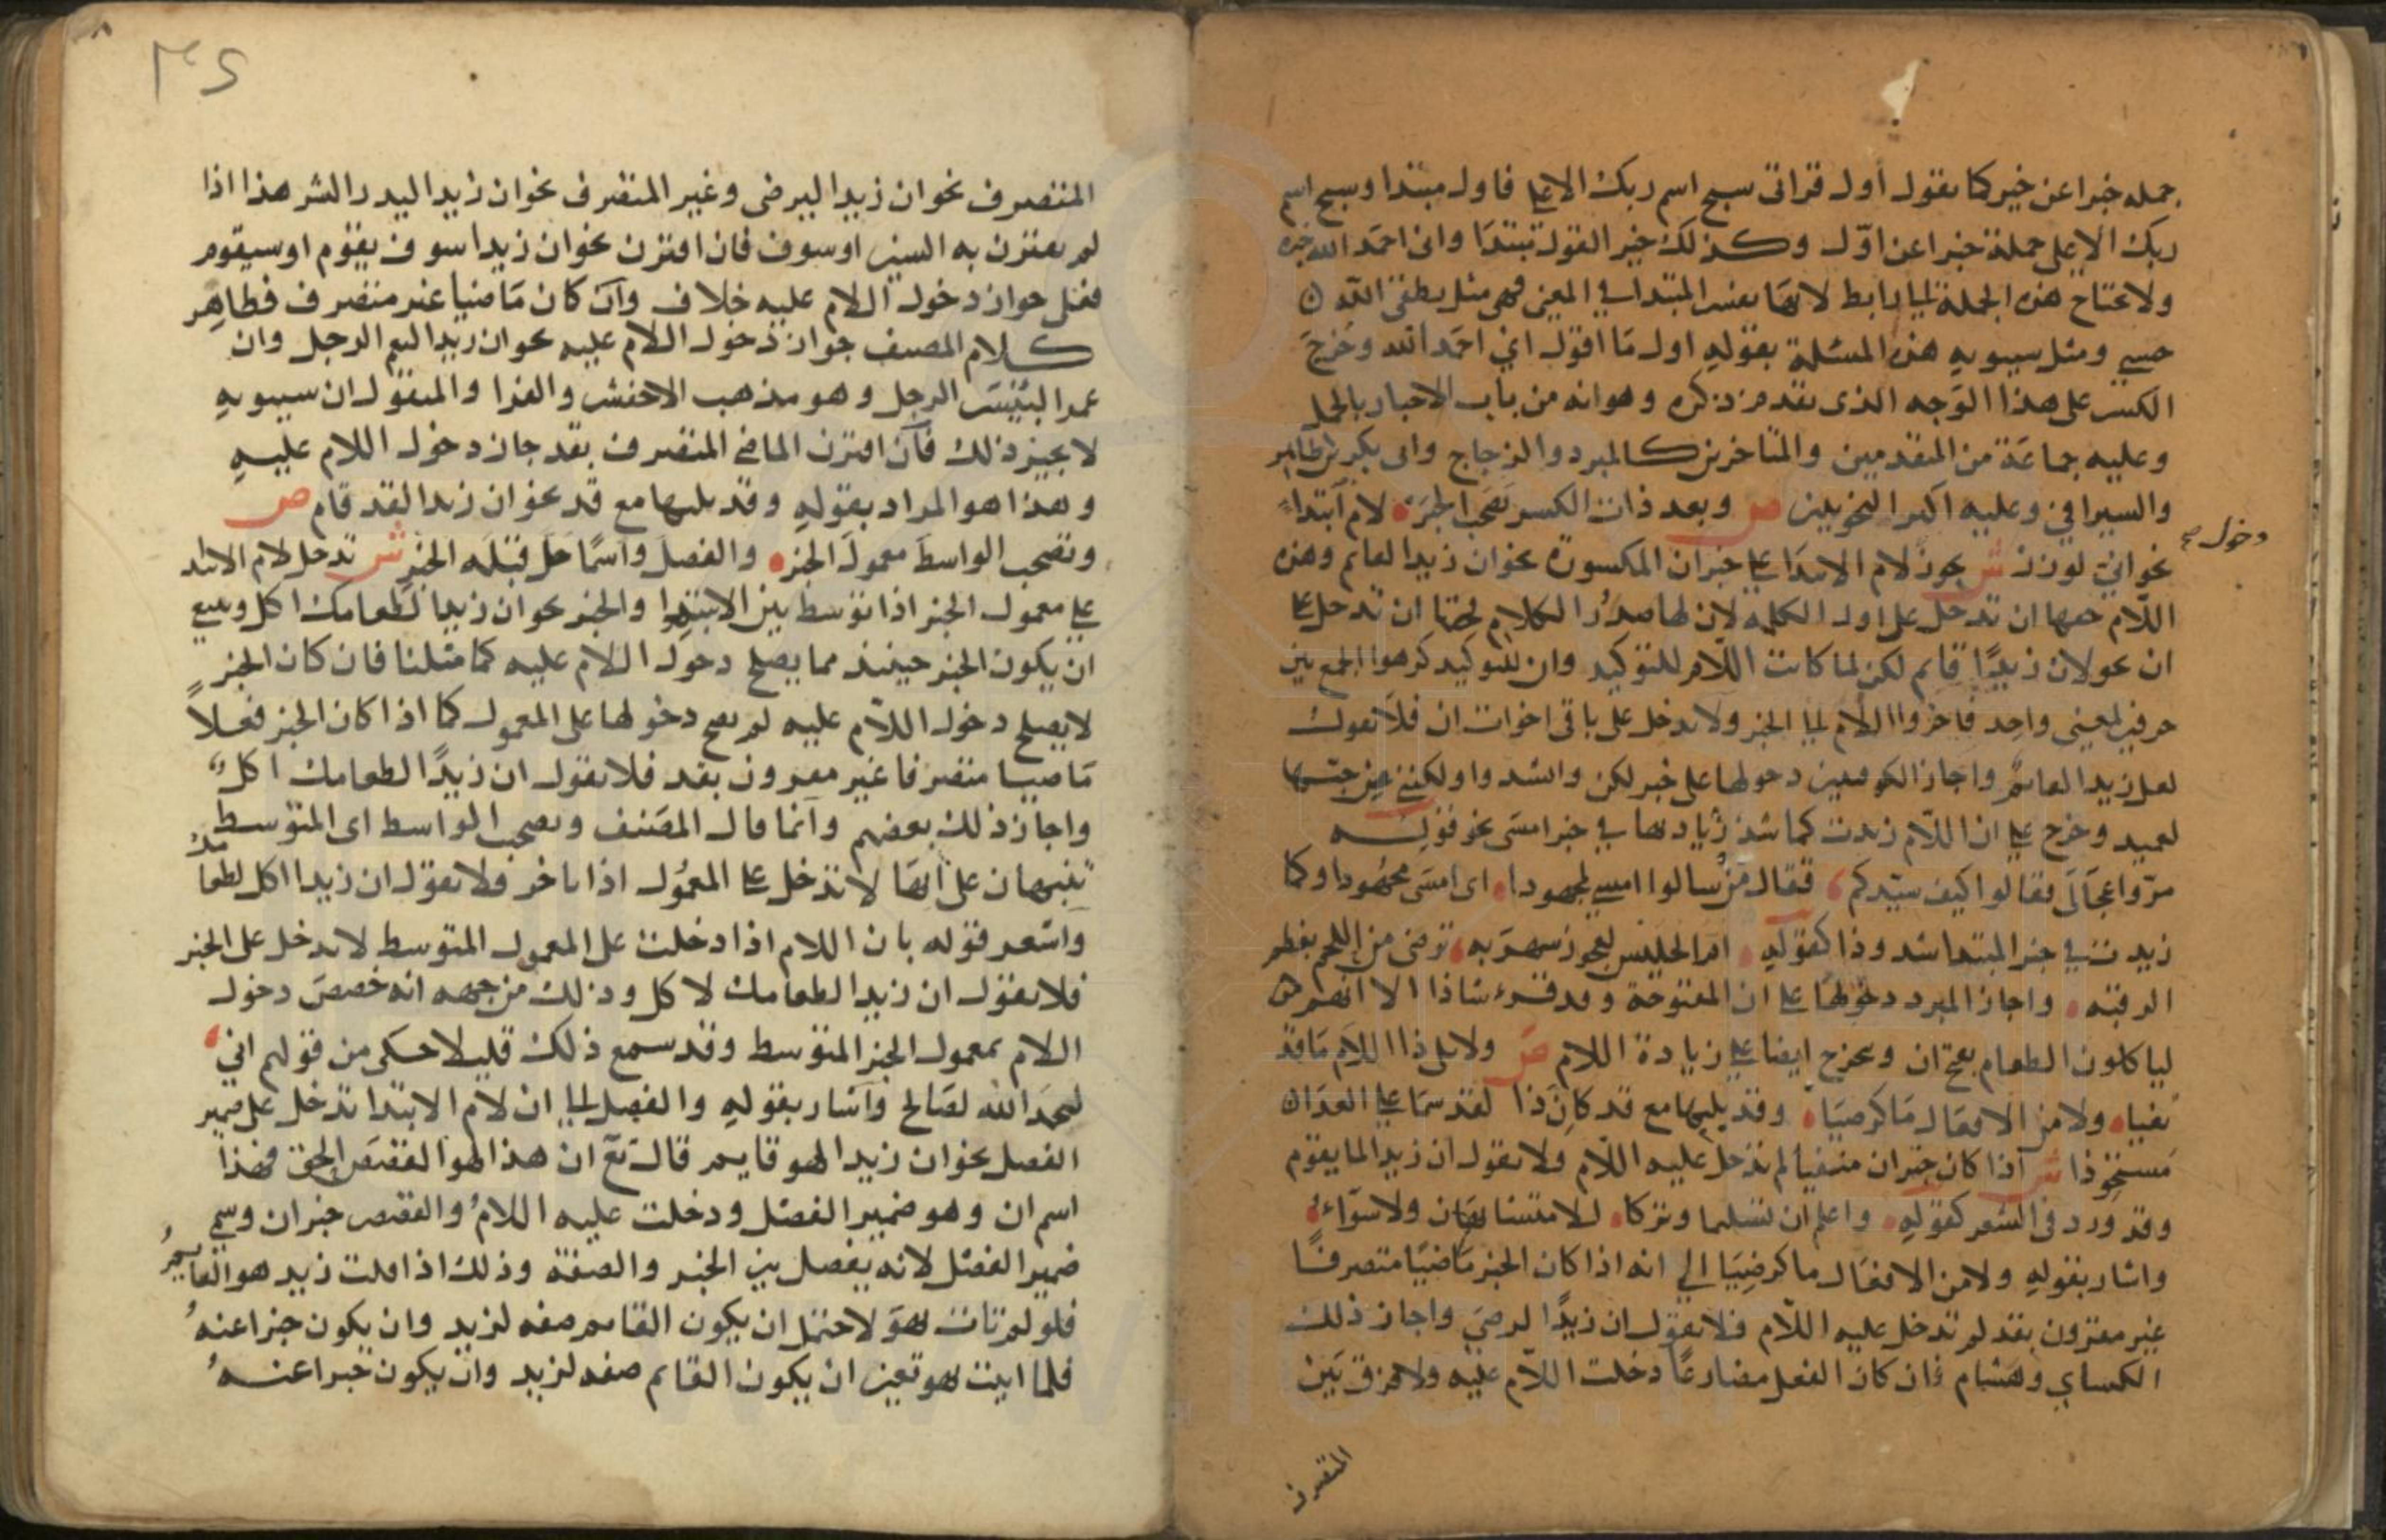 جمله خبرا عن خبر كما نقول أول قراتى سبح اسم ربك الاعلى فاول مبتدا وسبح اسم
ربك الاعلى جملة خبرا عن اوّل وكذلك خبر القول مبتدا وانى احمد الله خبره
ولا تحتاج هذه الجملة الى رابط لانها نفس المبتدا في المعنى فهي مثل نطقى الله
حسبى ومثل سيبويه هذه المسئلة بقوله اول ما اقول اني احمد الله وخرج
الكسر على هذا الوجه الذى تقدم ذكره وهو انه من باب الاخبار بالجمل
وعليه جماعة من المتقدمين والمتاخرين كالمبرد والزجاج وابى بكر بن طاهر
والسيرافي وعليه اكبر النحويين ص وبعد ذات الكسر تصحب الخبر لام ابتداء
نحو اني لوزر ش يجوز لام الابتدا على خبر ان المكسورة نحو ان زيدا لقايم وهذه
دخول صح
اللام حقها ان تدخل على اول الكلمه لان لها صدر الكلام فحقها ان تدخل على
ان نحو لان زيدًا قايم لكن لما كانت اللام للتوكيد وان للتوكيد كرهوا الجمع بين
حرفين لمعنى واحد فاخروا اللام الى الخبر ولا تدخل على باقى اخوات ان فلا تقول
لعل زيدا لقايم واجاز الكوفيين دخولها على خبر لكن وانشدوا ولكننى من حبها
لعميد وخرج على ان اللام زيدت كما شذ زيادتها في خبر امسى نحو قوله
مرّوا عجالى فقالوا كيف سيّدكم فقال من سالوا امسى لمجهودا اى امسى مجهودا وكما
زيدت في خبر المبتدا شذوذا كقوله ام الحليس لعجوز شهربه ترضى من اللحم بعظم
الرقبه واجاز المبرد دخولها على ان المفتوحة وقد قرء شاذا الا انهم
لياكلون الطعام بفتح ان ويخرج ايضا على زيادة اللام ص ولا يلى ذا اللام ما قد
نفيا ولا من الافعال ما كرضيا وقد يليها مع قد كان ذا لقد سما على العدا
مستحوذا ش اذا كان خبر ان منفيا لم تدخل عليه اللام فلا تقول ان زيدا لما يقوم
وقد ورد فى الشعر كقوله واعلم ان تسليما وتركا للا متشابهان ولا سواء
واشار بقوله ولا من الافعال ما كرضيا الى انه اذا كان الخبر ماضيا متصرفا
غير مقترون بقد لم تدخل عليه اللام فلا تقول ان زيدًا لرضى واجاز ذلك
الكساي وهشام فان كان الفعل مضارعا دخلت اللام عليه ولا فرق بين
المتصرف
٣٤
المتصرف نحو ان زيدا ليرضى وغير المتصرف نحو ان زيدا ليدر الشر هذا اذا
لم يقترن به السين او سوف فان اقترن نحو ان زيدا سوف يقوم او سيقوم
ففى جواز دخول اللام عليه خلاف وان كان ماضيا غير منصرف فظاهر
كلام المصنف جواز دخول اللام عليه نحو ان زيدا لنعم الرجل وان
عمرا لبئس الرجل وهو مذهب الاخفش والفرا والمنقول ان سيبويه
لا يجيز ذلك فان اقترن الماضى المتصرف بقد جاز دخول اللام عليه
وهذا هو المراد بقوله وقد يليها مع قد نحو ان زيدا لقد قام ص
وتصحب الواسط معمول الخبر والفصل واسمًا حل قبله الخبر ش تدخل لام الابتدا
على معمول الخبر اذا توسط بين الابتدا والخبر نحو ان زيدا لطعامك اكل وينبغي
ان يكون الخبر حينئذ مما يصلح دخول اللام عليه كما مثلنا فان كان الخبر
لا يصلح دخول اللام عليه لم يصح دخولها على المعمول كما اذا كان الخبر فعلاً
ماضيا متصرفا غير مقرون بقد فلا نقول ان زيدًا لطعامك اكل
واجاز ذلك بعضهم وانما قال المصنف وتصحب الواسط اى المتوسط
تنبيها على انها لا تدخل على المعمول اذا تاخر فلا نقول ان زيدا اكل لطعامك
واشعر قوله بان اللام اذا دخلت على المعمول المتوسط لا تدخل على الخبر
فلا نقول ان زيدا لطعامك لاكل وذلك من جهه انه خصص دخول
اللام بمعمول الخبر المتوسط وقد سمع ذلك قليلا حكى من قولهم اني
لبحمد الله لصالح واشار بقوله والفصل الى ان لام الابتدا تدخل على ضمير
الفصل نحو ان زيدا لهو قايم قال تع ان هذا لهو القصص الحق فهذا
اسم ان وهو ضمير الفصل ودخلت عليه اللام والقصص خبر ان وسمي
ضمير الفصل لانه يفصل بين الخبر والصفة وذلك اذا قلت زيد هو القايم
فلو لم تات هو لاحتمل ان يكون القايم صفه لزيد وان يكون خبرا عنه
فلما اتيت هو تعين ان يكون القايم صفه لزيد وان يكون خبرا عنه